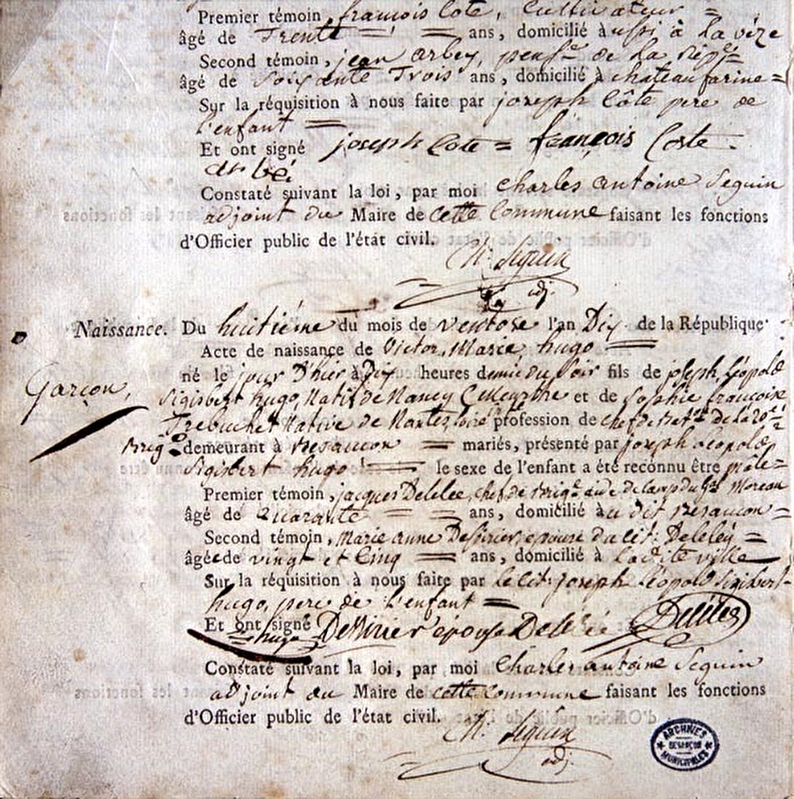 Premier témoin, françois Cote, Cultivateur =
âgé de Trente = ans, domicilié aussi à la véze
Second témoin, jean arbey, pens.re de la répq.=
âgé de Soixante Trois ans, domicilié à chateau farine =
Sur la réquisition à nous faite par joseph Côte pere de
l'enfant =
Et ont signé joseph Cote = françois Coste
arbéi
Constaté suivant la loi, par moi charles antoine Seguin
adjoint du Maire de cette Commune faisant les fonctions
d'Officier public de l'état civil.
Ch. Seguin
adj.
Naissance. Du huitiéme du mois de ventose l'an Dix de la République
Acte de naissance de Victor, Marie hugo =
Garçon, né le jour D'hier à Dix heures demie du soir fils de joseph Léopold
Sigisbert hugo, Natif de Nancy (Meurthe et de Sophie françoise
Trebuchet Native de Nantes profession de chef de Bat.on de la 20.e
Brig.e demeurant à Besancon = mariés, présenté par joseph Léopold
Sigisbert hugo = le sexe de l'enfant a été reconnu être mâle =
Premier témoin, jacques Delelée, chef de Brig.e aide de camp du g.al Moreau
âgé de Quarante = ans, domicilié au dit Besancon =
Second témoin, Marie anne Dessirier, epouse du cit: Delelée =
âgée de vingt et Cinq = ans, domicilié à la dite ville
Sur la réquisition à nous faite par le cit: joseph Léopold Sigisbert
hugo, pere de l'enfant =
Et ont signé hugo Dessirier épouse Delelée Delelée
Constaté suivant la loi, par moi Charles antoine Seguin
adjoint au Maire de cette commune faisant les fonctions
d'Officier public de l'état civil.
Ch. Seguin
adj.
ARCHIVES
BESANÇON
MUNICIPALES